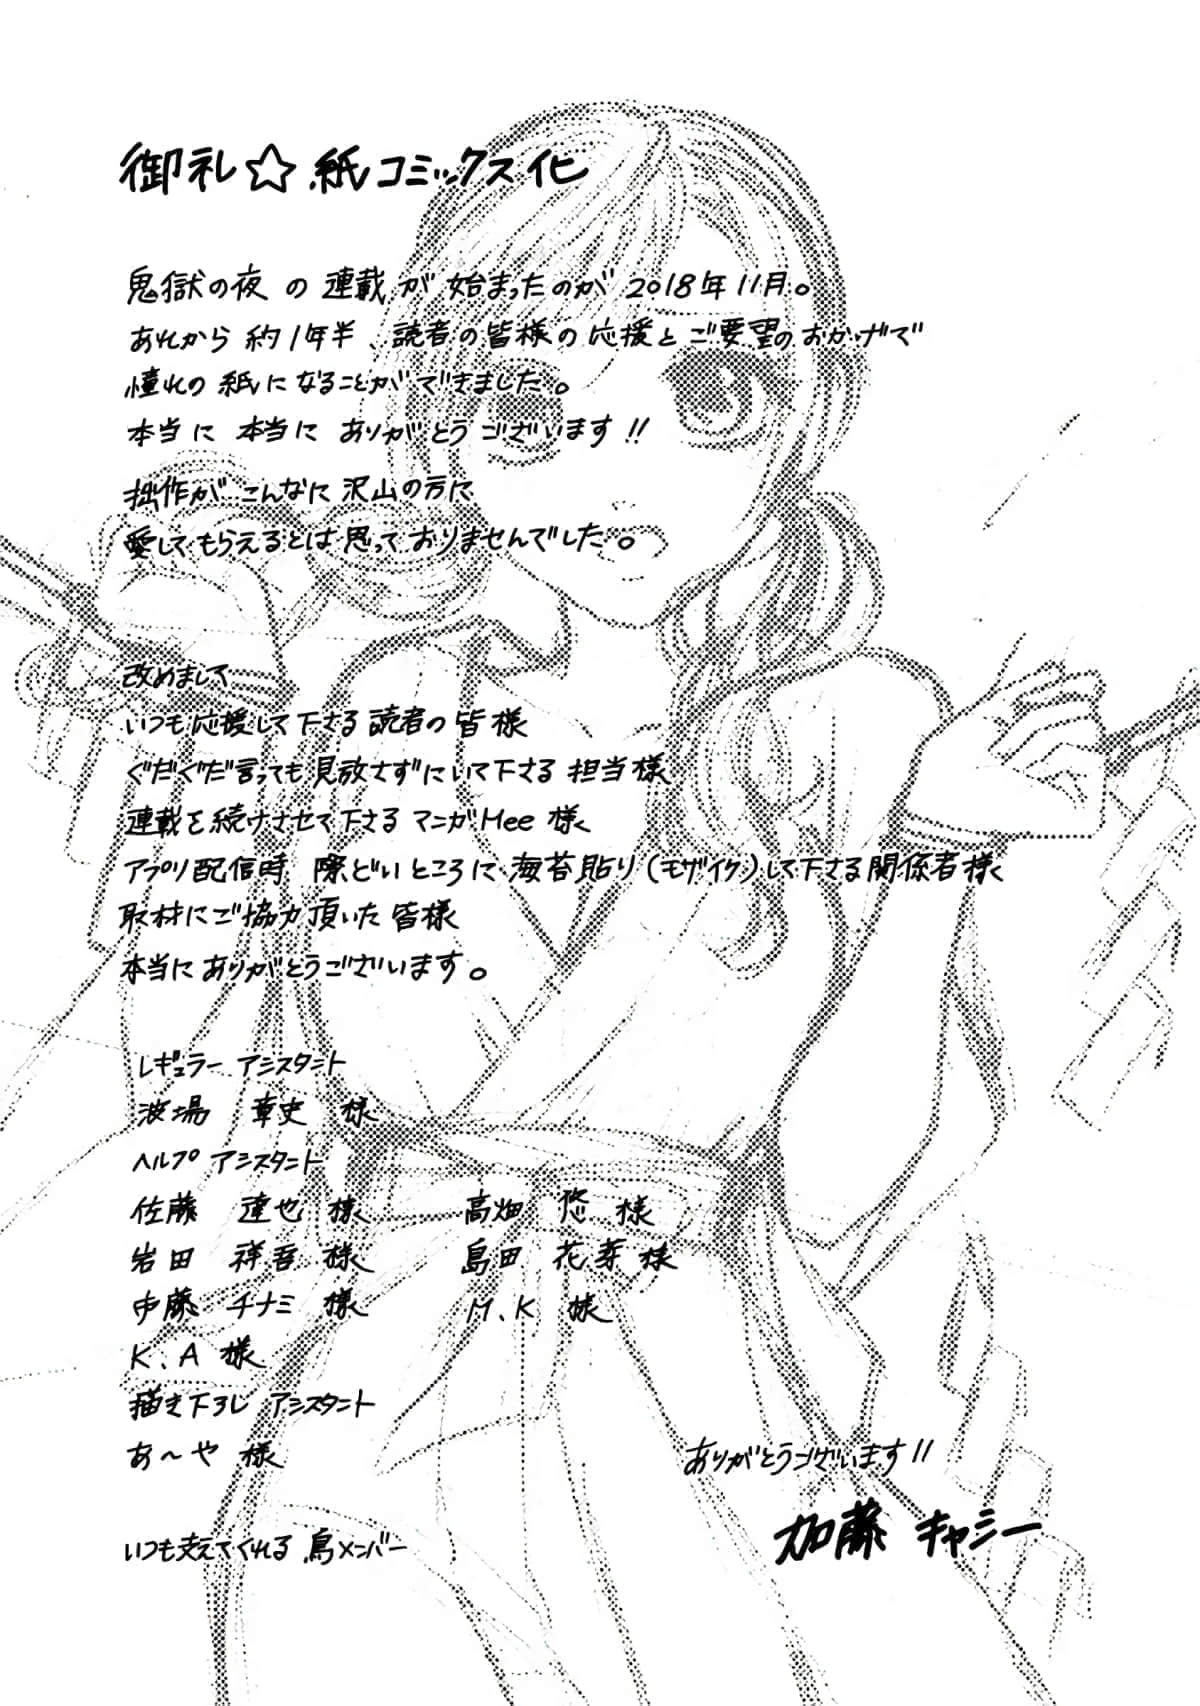 御礼☆紙コミックス化
鬼獄の夜の連載が始まったのが2018年11月。
あれから約1年半、読者の皆様の応援とご要望のおかげで
憧れの紙になることができました。
本当に本当にありがとうございます!!
拙作がこんなに沢山の方に
愛してもらえるとは思っておりませんでした。
改めまして
いつも応援して下さる読者の皆様
ぐだぐだ言っても見放さずにいて下さる担当様
連載を続けさせて下さるマンガMee様
アプリ配信時 際どいところに海苔貼り(モザイク)して下さる関係者様
取材にご協力頂いた皆様
本当にありがとうございます。
レギュラーアシスタント
波場 章史 様
ヘルプアシスタント
佐藤 達也 様 高畑 悠 様
岩田 祥吾 様 島田 花芽 様
中藤 チナミ 様 M.K 様
K.A 様
描き下ろしアシスタント
あ〜や 様
いつも支えてくれる鳥メンバー
ありがとうございます!!
加藤 キャシー